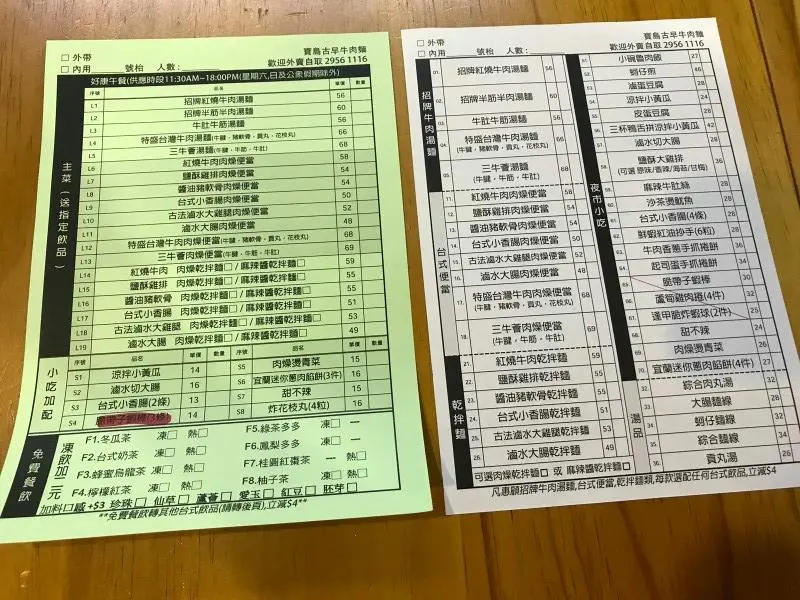 外帶
內用 號枱 人數:
寶島古早牛肉麵
歡迎外賣自取 2956 1116
好康午餐(供應時段11:30AM~18:00PM(星期六,日及公衆假期除外)
主菜(送指定飲品)
序號 品名 單價 數量
L1 招牌紅燒牛肉湯麵 56
L2 招牌半筋半肉湯麵 60
L3 牛肚牛筋湯麵 56
L4 特盛台灣牛肉湯麵(牛腱,豬軟骨,貢丸,花枝丸) 66
L5 三牛薈湯麵(牛腱,牛筋,牛肚) 68
L6 紅燒牛肉肉燥便當 58
L7 鹽酥雞排肉燥便當 54
L8 醬油豬軟骨肉燥便當 54
L9 台式小香腸肉燥便當 50
L10 古法滷水大雞腿肉燥便當 52
L11 滷水大腸肉燥便當 48
L12 特盛台灣牛肉肉燥便當(牛腱,豬軟骨,貢丸,花枝丸) 68
L13 三牛薈肉燥便當(牛腱,牛筋,牛肚) 69
L14 紅燒牛肉 肉燥乾拌麵 / 麻辣醬乾拌麵 59
L15 鹽酥雞排 肉燥乾拌麵 / 麻辣醬乾拌麵 55
L16 醬油豬軟骨 肉燥乾拌麵 / 麻辣醬乾拌麵 55
L17 台式小香腸 肉燥乾拌麵 / 麻辣醬乾拌麵 51
L18 古法滷水大雞腿 肉燥乾拌麵 / 麻辣醬乾拌麵 53
L19 滷水大腸 肉燥乾拌麵 / 麻辣醬乾拌麵 49
小吃加配
序號 品名 單價 數量 序號 品名 單價 數量
S1 涼拌小黃瓜 14 S5 肉燥燙青菜 15
S2 滷水切大腸 16 S6 宜蘭迷你蔥肉餡餅(3件) 16
S3 台式小香腸(2條) 13 S7 甜不辣 15
S4 脆帶子蝦棒(3條) 14 S8 炸花枝丸(4粒) 16
免費餐飲
凍飲加二元
F1.冬瓜茶 凍 熱 F5.綠茶多多 凍 —
F2.台式奶茶 凍 熱 F6.鳳梨多多 凍 —
F3.蜂蜜烏龍茶 凍 熱 F7.桂圓紅棗茶 — 熱
F4.檸檬紅茶 凍 熱 F8.柚子茶 凍 熱
加料口感 +$3 珍珠 仙草 蘆薈 愛玉 紅豆 胚芽
**免費餐飲轉其他台式飲品(請轉後頁),立減$4**
外帶
內用 號枱 人數:
寶島古早牛肉麵
歡迎外賣自取 2956 1116
招牌牛肉湯麵
01. 招牌紅燒牛肉湯麵 56
02. 招牌半筋半肉湯麵 60
03. 牛肚牛筋湯麵 56
04. 特盛台灣牛肉湯麵 66
(牛腱,豬軟骨,貢丸,花枝丸)
05. 三牛薈湯麵 68
(牛腱,牛筋,牛肚)
台式便當
11. 紅燒牛肉肉燥便當 58
12. 鹽酥雞排肉燥便當 54
13. 醬油豬軟骨肉燥便當 54
14. 台式小香腸肉燥便當 50
15. 古法滷水大雞腿肉燥便當 52
16. 滷水大腸肉燥便當 48
17. 特盛台灣牛肉肉燥便當 68
(牛腱,豬軟骨,貢丸,花枝丸)
18. 三牛薈肉燥便當 69
(牛腱,牛筋,牛肚)
乾拌麵
21. 紅燒牛肉乾拌麵 59
22. 鹽酥雞排乾拌麵 55
23. 醬油豬軟骨乾拌麵 55
24. 台式小香腸乾拌麵 51
25. 古法滷水大雞腿乾拌麵 53
26. 滷水大腸乾拌麵 49
可選肉燥乾拌麵 或 麻辣醬乾拌麵
夜市小吃
小碗魯肉飯
蚵仔煎
滷蛋豆腐
涼拌小黃瓜
皮蛋豆腐
三杯鴨舌拼涼拌小黃瓜
滷水切大腸
鹽酥大雞排
(可選 原味/香辣/海苔/甘梅)
麻辣牛肚絲
沙茶燙魷魚
台式小香腸(4條)
鮮蝦紅油抄手(6粒)
牛肉香蔥手抓捲餅
起司蛋手抓捲餅
脆帶子蝦棒
蘆筍雞肉捲(4件)
蓬甲脆炸蝦球(2件)
甜不辣
肉燥燙青菜
宜蘭迷你蔥肉餡餅(4件)
湯品
綜合肉丸湯
大腸麵線
蚵仔麵線
綜合麵線
貢丸湯
凡惠顧招牌牛肉湯麵,台式便當,乾拌麵類,每款選配任何台式飲品,立減$4